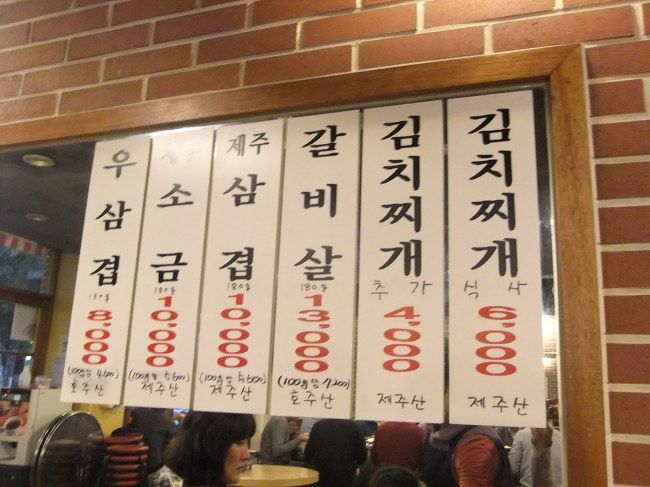 우삼겹
180g
8,000
(100g당 4,500)
호주산
제주
소금
180g
10,000
(100g당 5,600)
제주산
제주
삼겹
180g
10,000
(100g당 5,600)
제주산
갈비살
180g
13,000
(100g당 7,200)
호주산
김치찌개
추가
4,000
제주산
김치찌개
식사
6,000
제주산